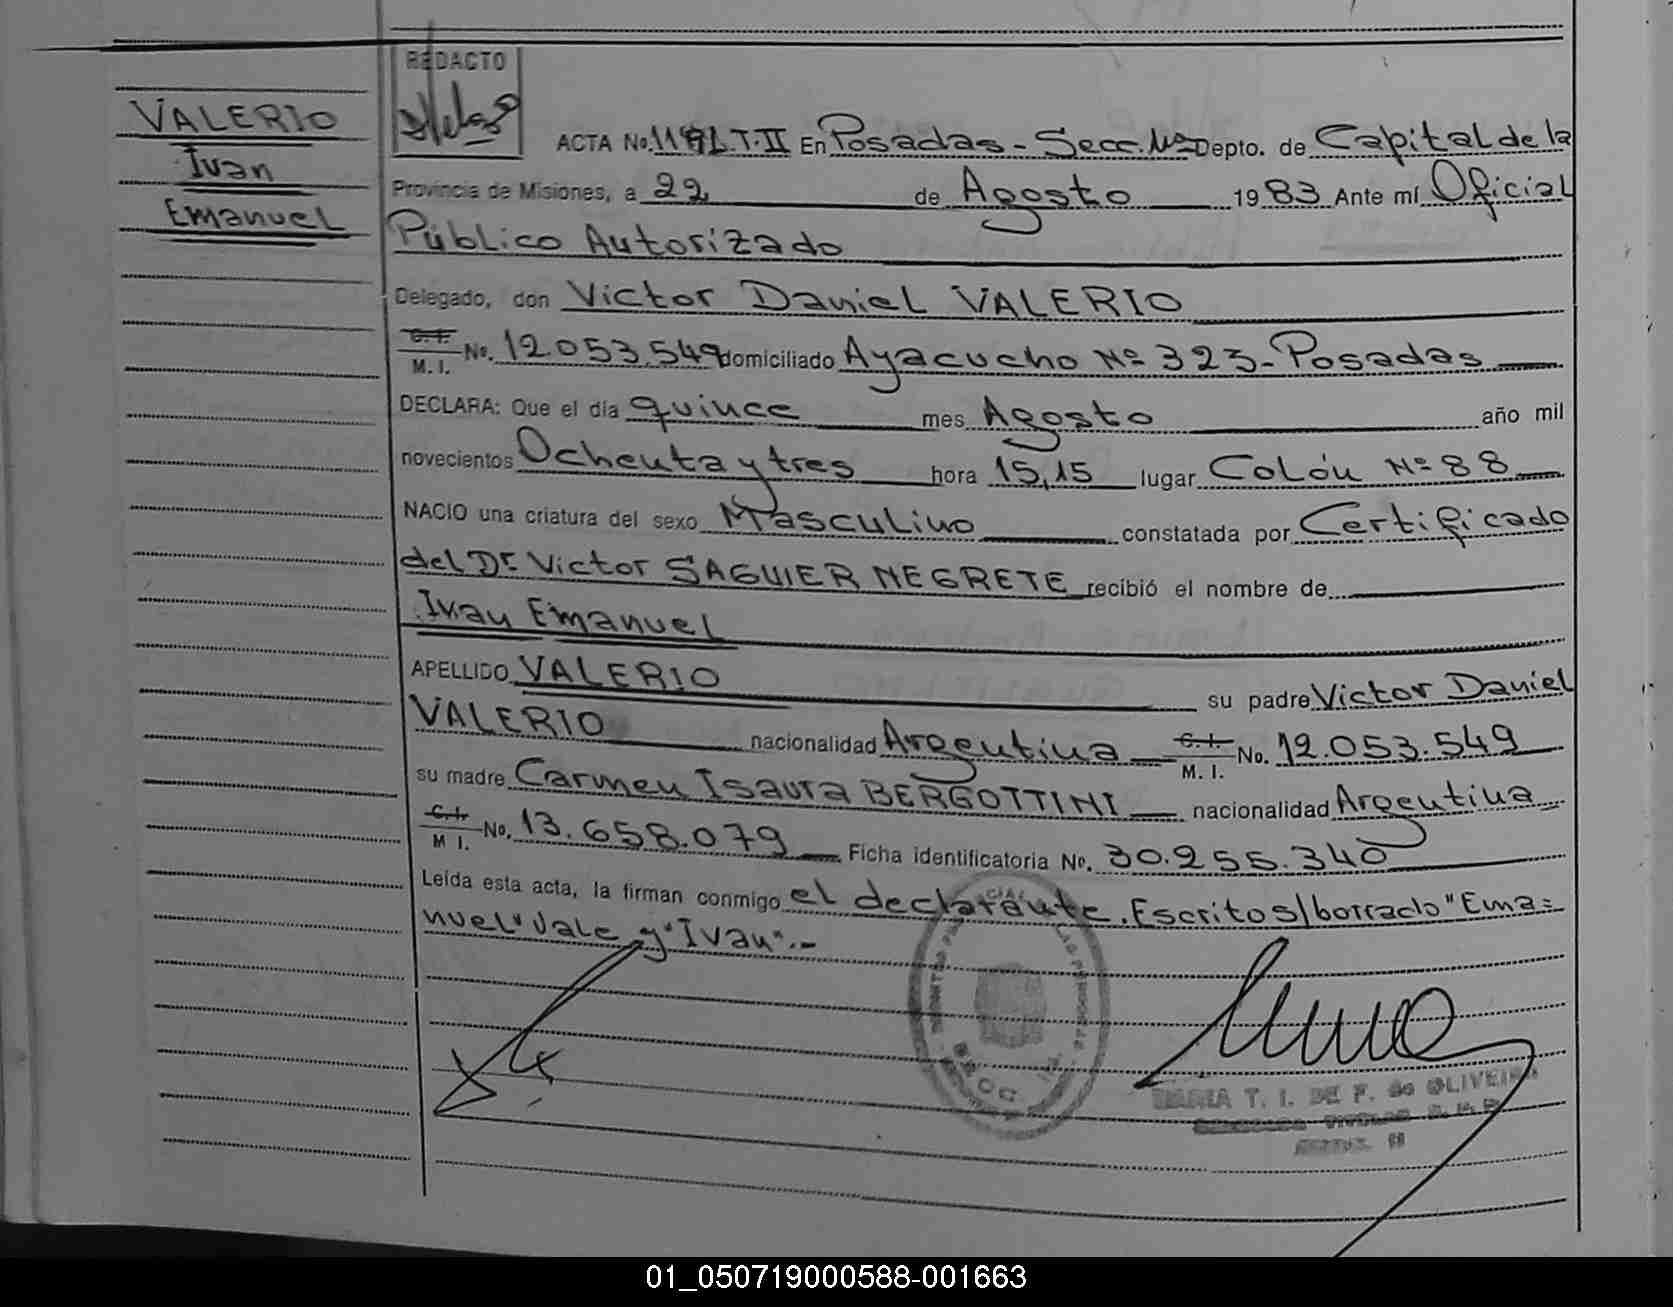 VALERIO
Ivan
Emanuel
REDACTO
ACTA No. T.II En Posadas - Secc. Depto. de Capital de la
Provincia de Misiones, a 22 de Agosto 1983 Ante mí Oficial
Público Autorizado
Delegado, don Victor Daniel VALERIO
C.I.
M.I. No. 12.053.549 domiciliado Ayacucho Nº 323-Posadas
DECLARA: Que el día quince mes Agosto año mil
novecientos Ochenta y tres hora 15,15 lugar Colón Nº 88
NACIO una criatura del sexo Masculino constatada por Certificado
del Dr Victor SAGUIER NEGRETE recibió el nombre de
Ivan Emanuel
APELLIDO VALERIO su padre Victor Daniel
VALERIO nacionalidad Argentina C.I. M.I. No. 12.053.549
su madre Carmen Isaura BERGOTTINI nacionalidad Argentina
C.I.
M I. No. 13.658.079 Ficha identificatoria No. 30.255.340
Leída esta acta, la firman conmigo el declarante. Escrito s/borrado "Ema=
nuel" vale y "Ivan".-
MARIA T. I. DE F. de OLIVEIRA
01_050719000588-001663